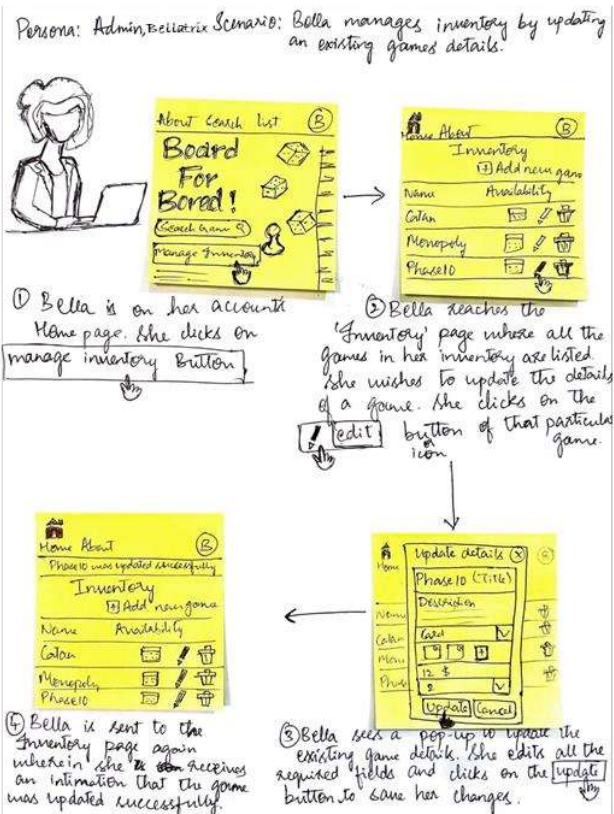 Persona: Admin, Bellatrix Scenario: Bella manages inventory by updating
an existing games details.
About Search list B
Board
For
Bored!
Search Game
Manage Inventory
① Bella is on her accounts
Home page. She clicks on
manage inventory Button
Home About B
Inventory
+ Add new game
Name Availability
Catan
Monopoly
Phase10
② Bella reaches the
'Inventory' page where all the
games in her inventory are listed
She wishes to update the details
of a game. She clicks on the
edit button of that particular
or icon game.
Home
Name
Catan
Mono
Phas
Update details X
Phase 10 (Title)
Description
Card
+
12 $
2
Update Cancel
③ Bella sees a pop-up to update the
existing game details. She edits all the
required fields and clicks on the update
button to save her changes.
Home About B
Phase 10 was updated successfully
Inventory
+ Add new game
Name Availability
Catan
Monopoly
Phase10
④ Bella is sent to the
Inventory page again
wherein she receives
an intimation that the game
was updated successfully.